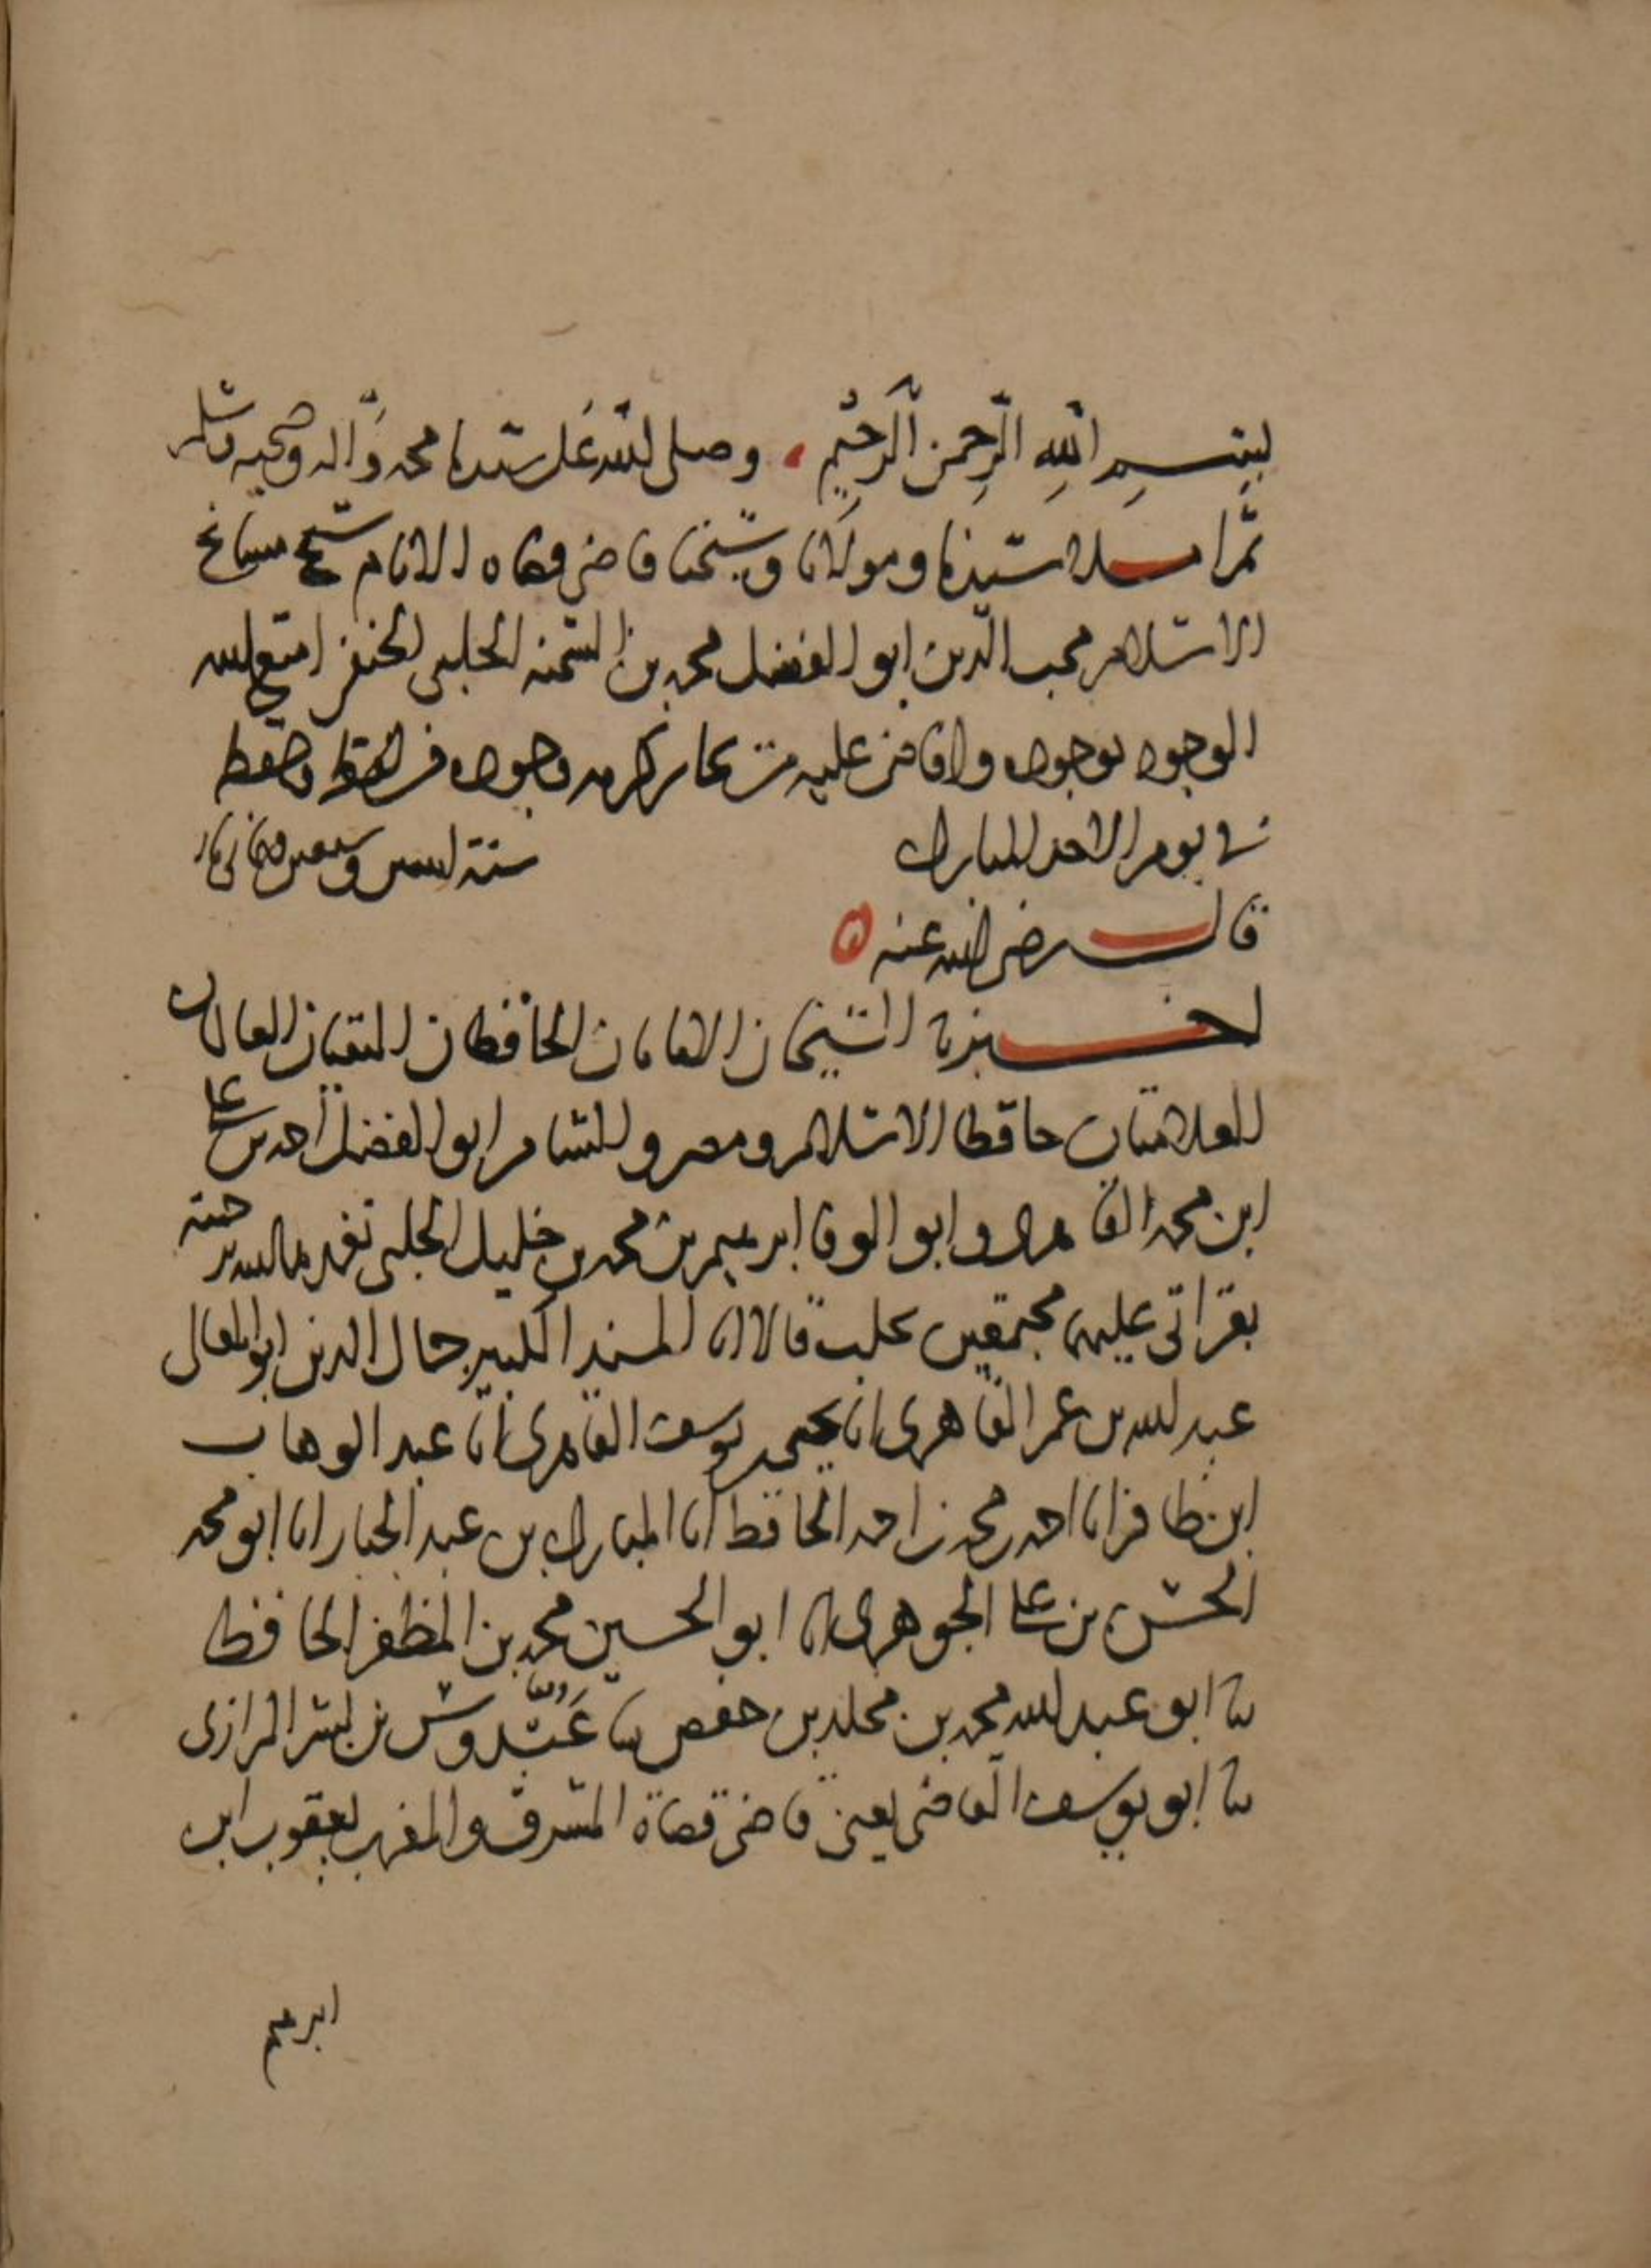 بسم الله الرحمن الرحيم وصلى الله على سيدنا محمد وآله وصحبه وسلم
ثم املا سيدنا ومولانا وشيخنا قاضي قضاه الانام شيخ مشايخ
الاسلام محب الدين ابو الفضل محمد بن الشحنه الحلبي الحنفي امتع الله
الوجود بوجوده وافاض عليه من بحار كرمه وجوده من لفظه وحفظه
في يوم الاحد المبارك سنة وسبعين وثماني مايه
قال رضي الله عنه
اخبرنا الشيخان الامامان الحافظان المتقنان العالمان
العلامتان حافظا الاسلام ومصر والشام ابو الفضل احمد بن علي
ابن محمد القاهري وابو الوفا ابرهيم بن محمد بن خليل الحلبي تغمدهما الله برحمته
بقراتي عليهما مجتمعين بحلب قالا انا المسند الكبير جمال الدين ابو المعالي
عبد الله بن عمر القاهري انا يحيى بن يوسف القاهري انا عبد الوهاب
ابن ظافر انا احمد بن محمد بن احمد الحافظ انا المبارك بن عبد الجبار انا ابو محمد
الحسن بن علي الجوهري انا ابو الحسين محمد بن المظفر الحافظ
ثنا ابو عبد الله محمد بن مخلد بن حفص ثنا عبدوس بن بشر الرازي
ثنا ابو يوسف القاضي يعني قاضي قضاة المشرق والمغرب يعقوب ابن
ابرهيم